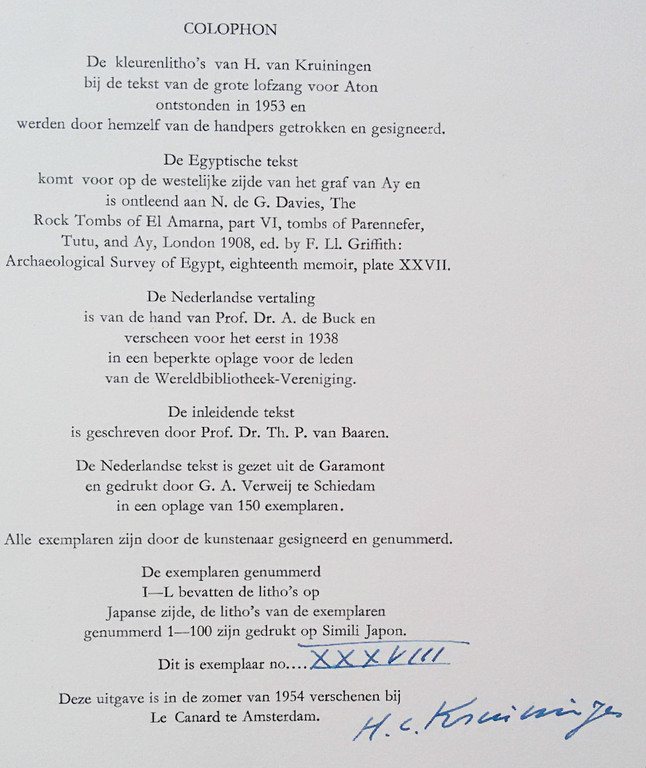 COLOPHON
De kleurenlitho's van H. van Kruiningen
bij de tekst van de grote lofzang voor Aton
ontstonden in 1953 en
werden door hemzelf van de handpers getrokken en gesigneerd.
De Egyptische tekst
komt voor op de westelijke zijde van het graf van Ay en
is ontleend aan N. de G. Davies, The
Rock Tombs of El Amarna, part VI, tombs of Parennefer,
Tutu, and Ay, London 1908, ed. by F. Ll. Griffith:
Archaeological Survey of Egypt, eighteenth memoir, plate XXVII.
De Nederlandse vertaling
is van de hand van Prof. Dr. A. de Buck en
verscheen voor het eerst in 1938
in een beperkte oplage voor de leden
van de Wereldbibliotheek-Vereniging.
De inleidende tekst
is geschreven door Prof. Dr. Th. P. van Baaren.
De Nederlandse tekst is gezet uit de Garamont
en gedrukt door G. A. Verweij te Schiedam
in een oplage van 150 exemplaren.
Alle exemplaren zijn door de kunstenaar gesigneerd en genummerd.
De exemplaren genummerd
I—L bevatten de litho's op
Japanse zijde, de litho's van de exemplaren
genummerd 1—100 zijn gedrukt op Simili Japon.
Dit is exemplaar no.... XXXVIII
Deze uitgave is in de zomer van 1954 verschenen bij
Le Canard te Amsterdam.
H. v. Kruiningen